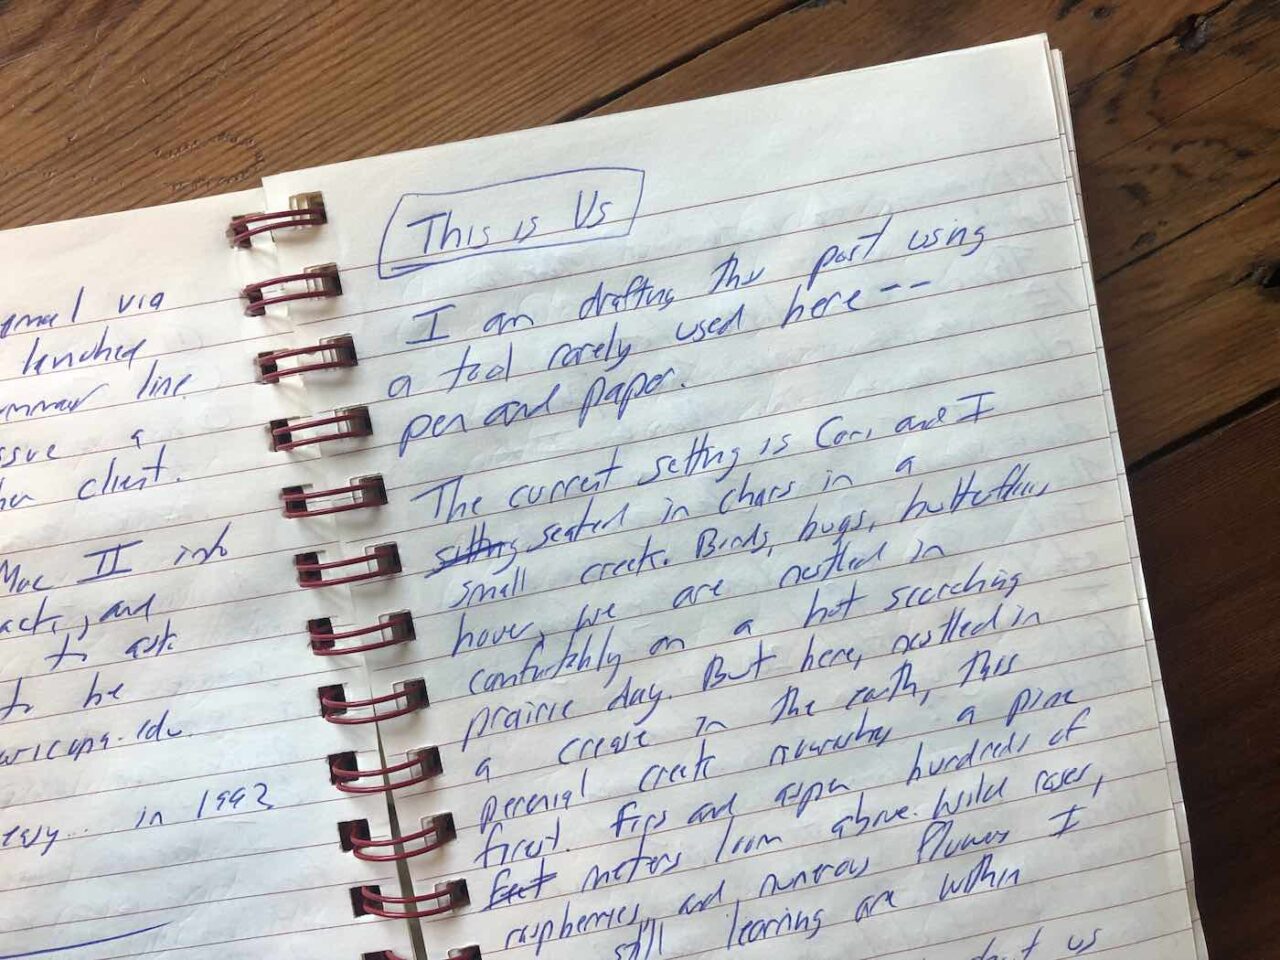 email via
launched
line
issue a
client.
Mac II into
and
to ask
to be
maricopa.edu.
easy... in 1992
This is Us
I am drafting this post using
a tool rarely used here --
pen and paper.
The current setting is Cori and I
sitting seated in chairs in a
small creek. Birds, bugs, butterflies
hover, we are nestled in
comfortably on a hot scorching
prairie day. But here, nestled in
a crease in the earth, this
perenial creek nourishes a pine
first. Firs and aspen hundreds of
feet meters loom above. Wild roses,
raspberries, and numerous flowers I
still learning are within
about us